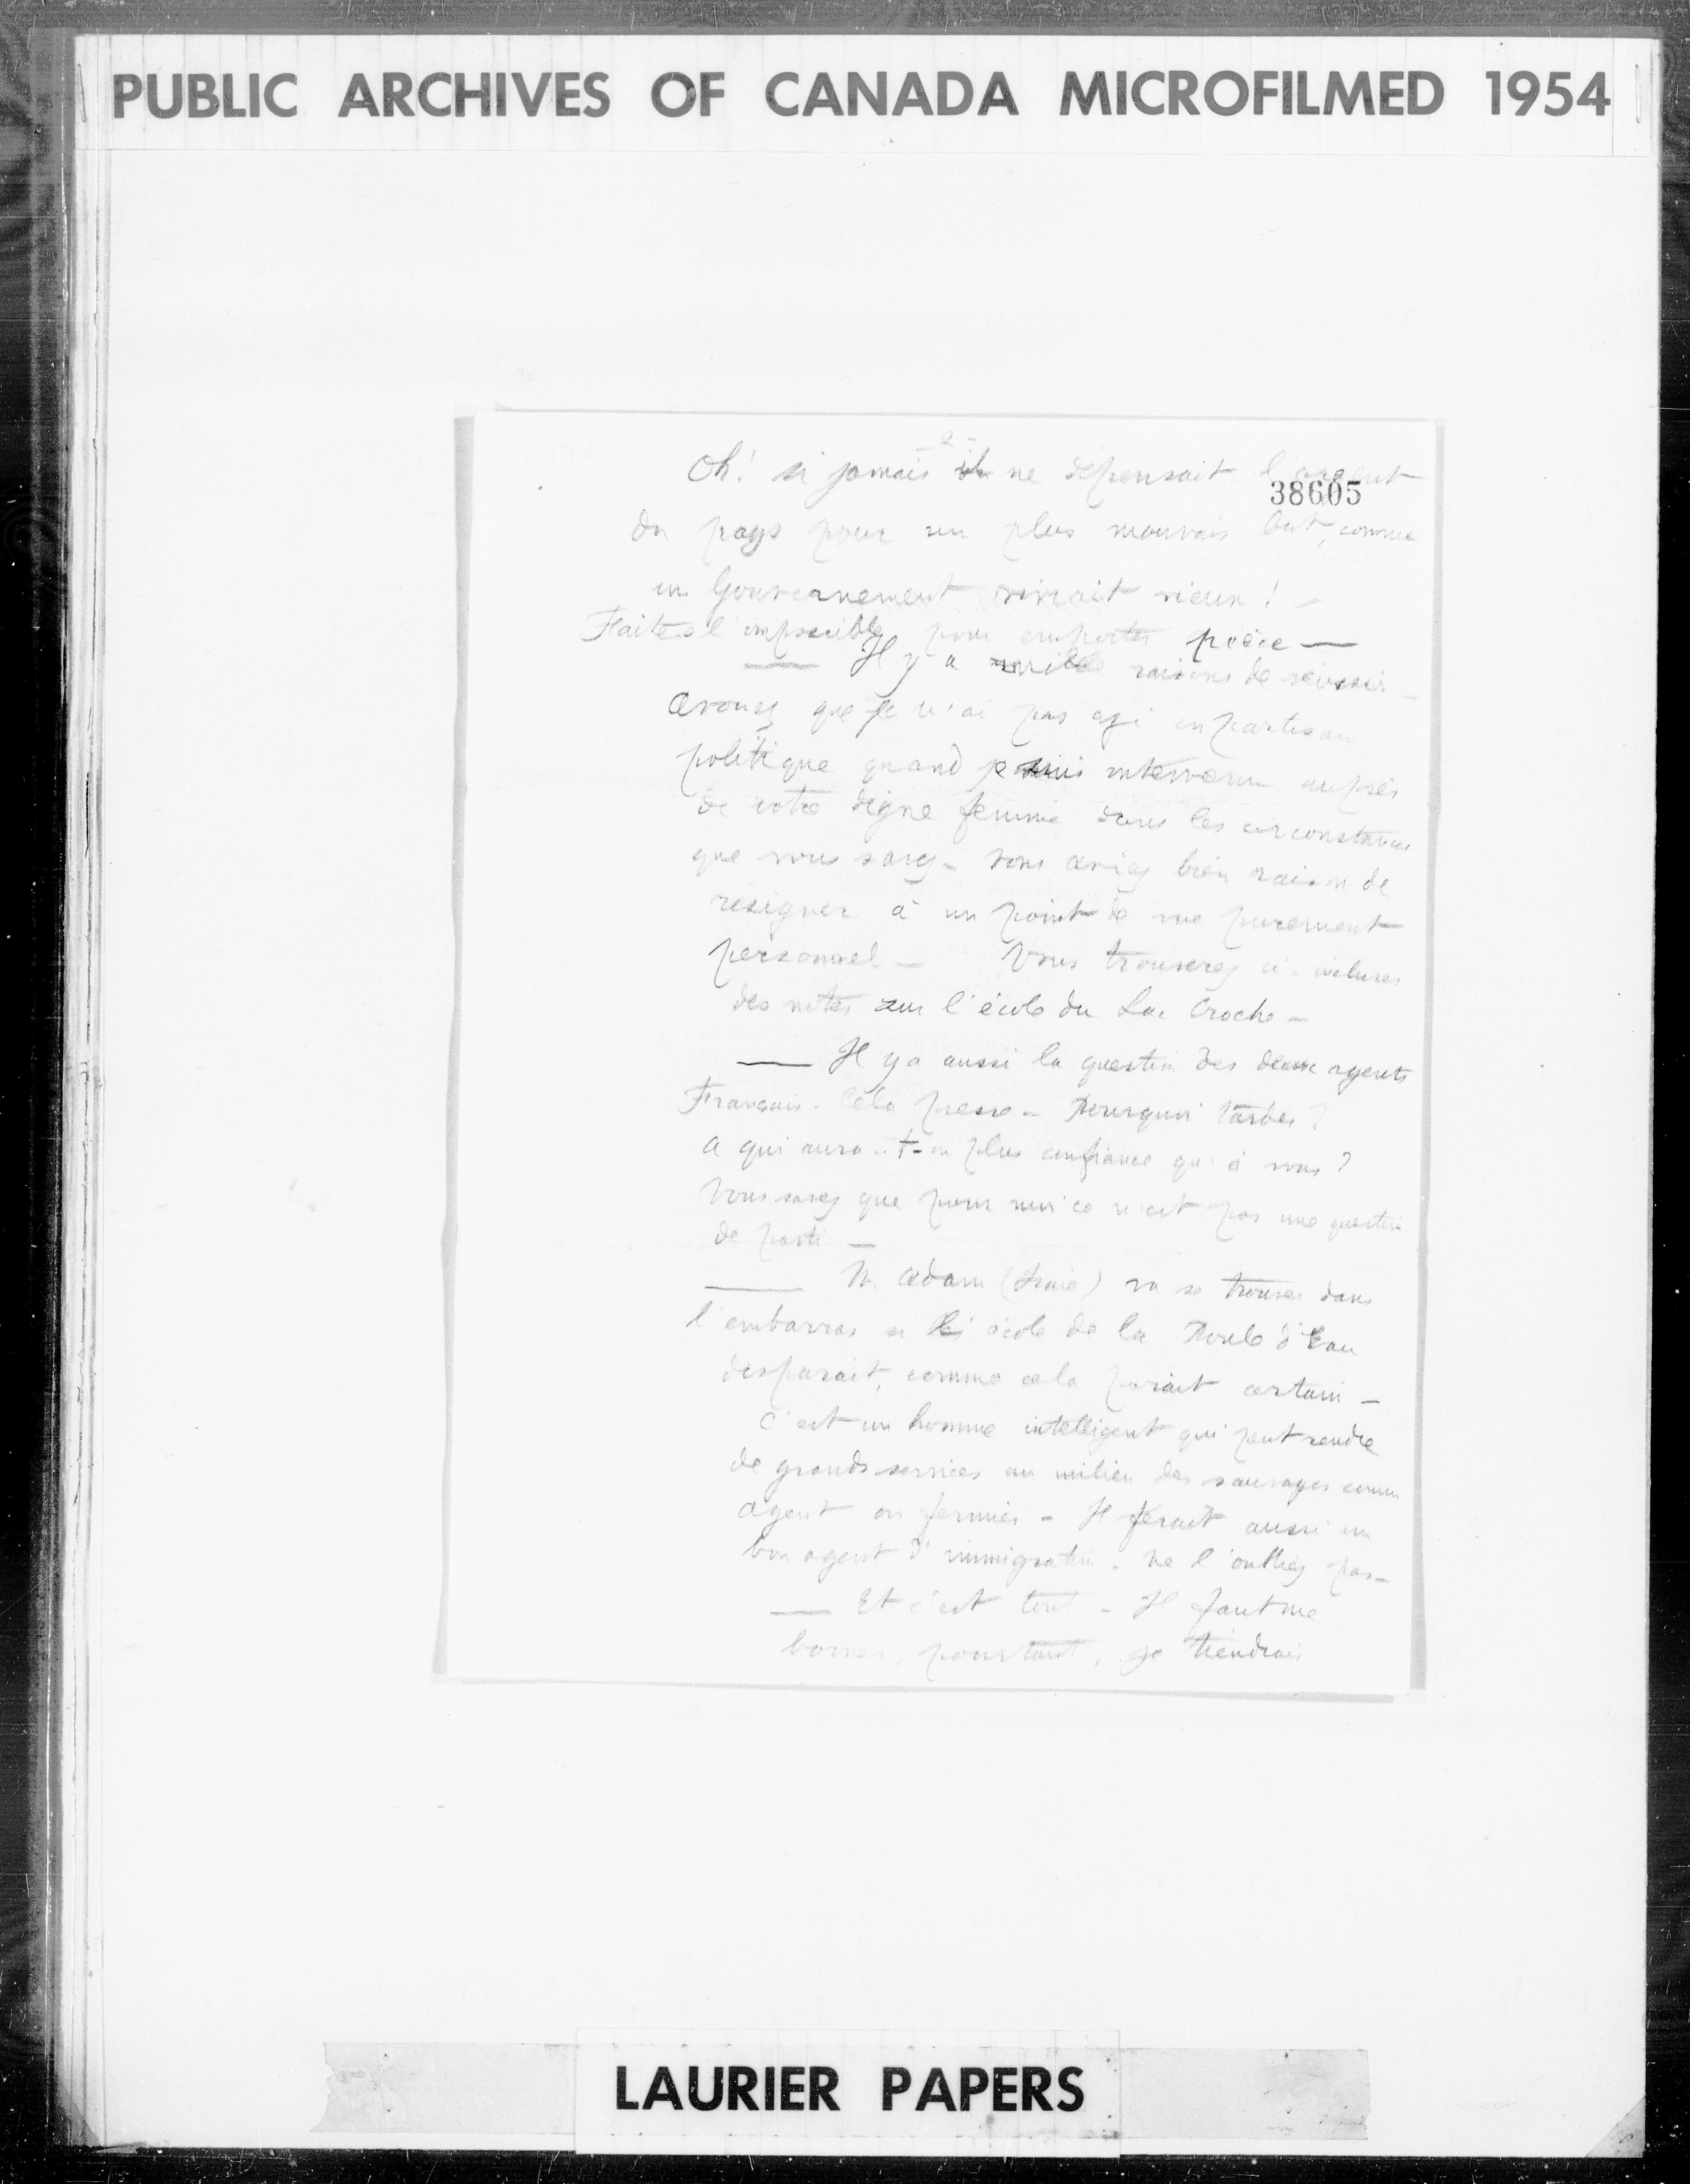 PUBLIC ARCHIVES OF CANADA MICROFILMED 1954
- 2 -
Oh! si jamais il ne dépensait l'argent
38605
du pays pour un plus mauvais but, comme
un Gouvernement vieux! -
Faites l'impossible pour emporter pièce —
— Il y a mille raisons de réussir -
Avouez que je n'ai pas agi en partisan
politique quand je suis intervenu auprès
de votre digne femme dans les circonstances
que vous savez - Vous aviez bien raison de
résigner à un point de vue purement
personnel - Vous trouverez ci-incluses
des notes sur l'école du Lac Croche -
— Il y a aussi la question des deux agents
Français. Cela presse - Pourquoi tarder?
A qui aura-t-on plus confiance qu'à vous?
Vous savez que pour moi ce n'est pas une question
de parti —
— M. Adam ) va se trouver dans
l'embarras si l'école de la Poule d'Eau
disparait, comme cela parait certain -
C'est un homme intelligent qui peut rendre
de grands services au milieu des sauvages comme
agent ou fermier - Il ferait aussi un
bon agent d'immigration. Ne l'oubliez pas -
— Et c'est tout - Il faut me
borner, pourtant, je tiendrais
LAURIER PAPERS